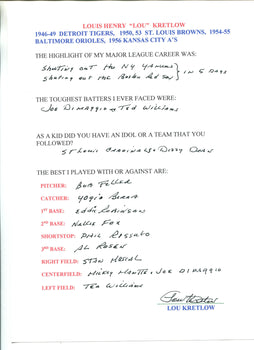 LOUIS HENRY "LOU" KRETLOW
1946-49 DETROIT TIGERS, 1950, 53 ST. LOUIS BROWNS, 1954-55
BALTIMORE ORIOLES, 1956 KANSAS CITY A'S
THE HIGHLIGHT OF MY MAJOR LEAGUE CAREER WAS:
Shutting out the NY Yankees
Shutting out the Boston Red Sox } in 5 days
THE TOUGHEST BATTERS I EVER FACED WERE:
Joe DiMaggio & Ted Williams
AS A KID DID YOU HAVE AN IDOL OR A TEAM THAT YOU
FOLLOWED?
St Louis Cardinals & Dizzy Dean
THE BEST I PLAYED WITH OR AGAINST ARE:
PITCHER: Bob Feller
CATCHER: Yogi Berra
1ST BASE: Eddie Robinson
2ND BASE: Nellie Fox
SHORTSTOP: Phil Rizzuto
3RD BASE: Al Rosen
RIGHT FIELD: Stan Musial
CENTERFIELD: Mickey Mantle & Joe DiMaggio
LEFT FIELD: Ted Williams
Lou Kretlow
LOU KRETLOW